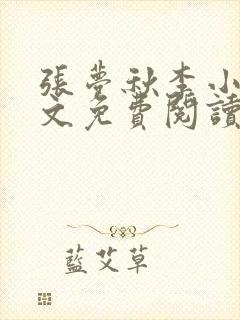 張夢秋李小
文免費閱讀
藍艾草